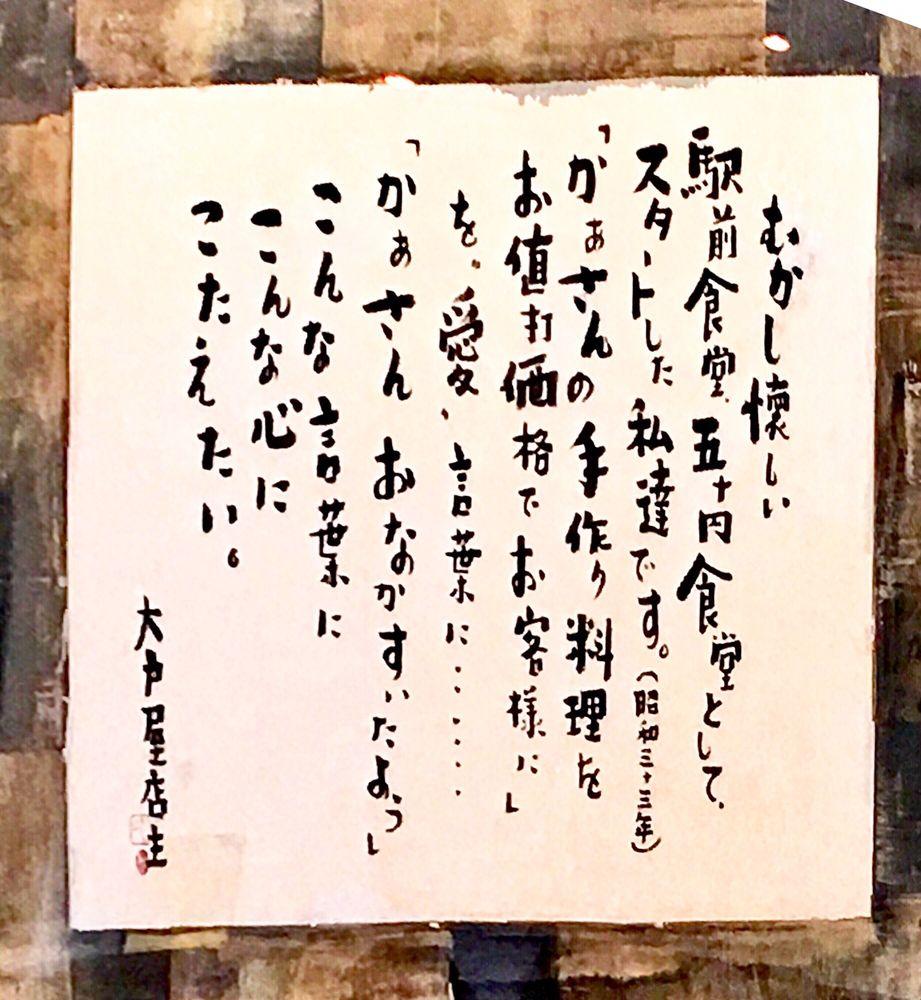 むかし懐しい
駅前食堂、五十円食堂として、
スタートした私達です。(昭和三十三年)
「かぁさんの手作り料理を
お値打価格でお客様に」
を、愛、言葉に・・・・・・
「かぁさん おなかすいたよぅ」
こんな言葉に
こんな心に
こたえたい。
大戸屋店主